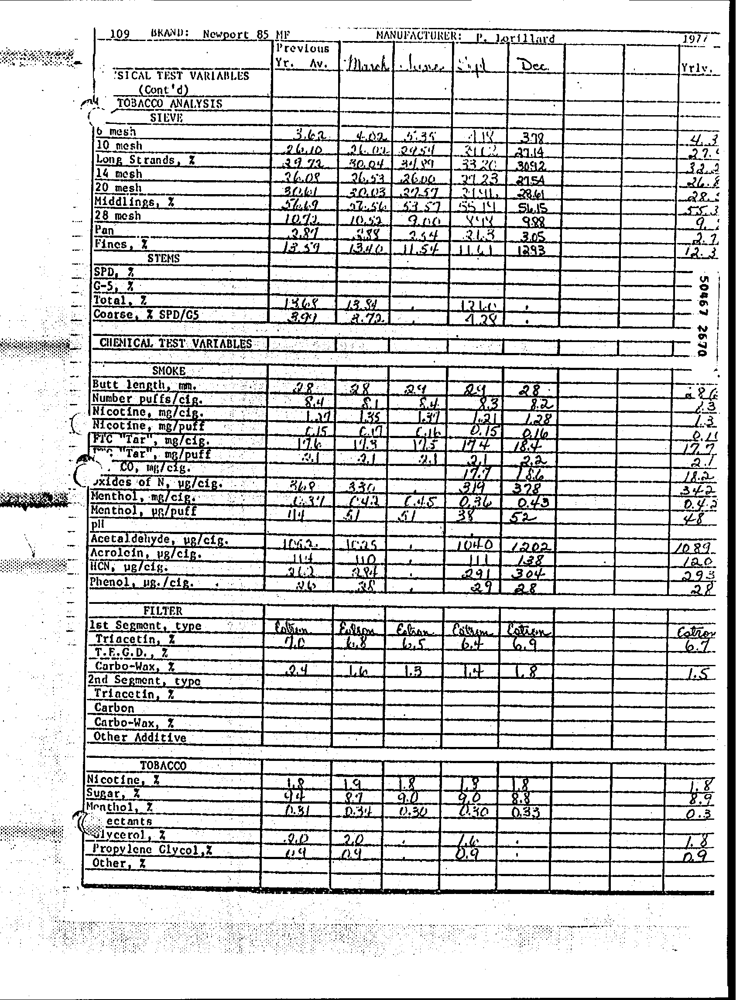 109 BRAND: Newport 85 MF MANUFACTURER: P. Lorillard 1977
Previous
Yr. Av. March June Sept Dec. Yrly.
SICAL TEST VARIABLES
(Cont'd)
TOBACCO ANALYSIS
SIEVE
6 mesh 3.62 4.02 5.35 4.18 3.78 4.3
10 mesh 26.10 26.02 29.54 27.14 27.
Long Strands, % 29.72 30.04 34.89 33.20 30.92 32.2
14 mesh 26.08 26.53 26.00 27.23 27.54 26.8
20 mesh 30.61 30.03 27.57 28.61 28.
Middlings, % 56.69 56.56 53.57 55.19 56.15 55.3
28 mesh 10.72 10.52 9.00 9.88 9.
Pan 2.87 2.88 2.54 2.63 3.05 2.7
Fines, % 13.59 13.40 11.54 11.61 12.93 12.3
STEMS
SPD, %
G-5, %
Total, % 13.68 13.84 12.60
Coarse, % SPD/G5 3.91 2.72 4.28
50467 2670
CHEMICAL TEST VARIABLES
SMOKE
Butt length, mm. 28 28 29 29 28 28
Number puffs/cig. 8.4 8.1 8.4 8.3 8.2 8.3
Nicotine, mg/cig. 1.27 1.35 1.37 1.21 1.28 1.3
Nicotine, mg/puff 0.15 0.17 0.16 0.15 0.16 0.1
FTC "Tar", mg/cig. 17.6 17.3 17.5 17.4 18.4 17.7
"Tar", mg/puff 2.1 2.1 2.1 2.1 2.2 2.1
CO, mg/cig. 17.7 18.6 18.2
oxides of N, µg/cig. 368 330 319 378 342
Menthol, mg/cig. 0.37 0.42 0.45 0.36 0.43 0.42
Menthol, µg/puff 44 51 51 38 52 48
pH
Acetaldehyde, µg/cig. 1062 1025 1040 1202 1089
Acrolein, µg/cig. 114 110 111 138 120
HCN, µg/cig. 262 284 291 304 293
Phenol, µg./cig. 26 28 29 28 28
FILTER
1st Segment, type Estron Estron Estron Estron Estron Estron
Triacetin, % 7.0 6.8 6.5 6.4 6.9 6.7
T.E.G.D., %
Carbo-Wax, % 2.4 1.6 1.3 1.4 1.8 1.5
2nd Segment, type
Triacetin, %
Carbon
Carbo-Wax, %
Other Additive
TOBACCO
Nicotine, % 1.8 1.9 1.8 1.8 1.8 1.8
Sugar, % 9.4 8.7 9.0 9.0 8.8 8.9
Menthol, % 0.31 0.34 0.30 0.30 0.33 0.3
ectants
Glycerol, % 2.0 2.0 1.6 1.8
Propylene Glycol,% 0.9 0.9 0.9 0.9
Other, %